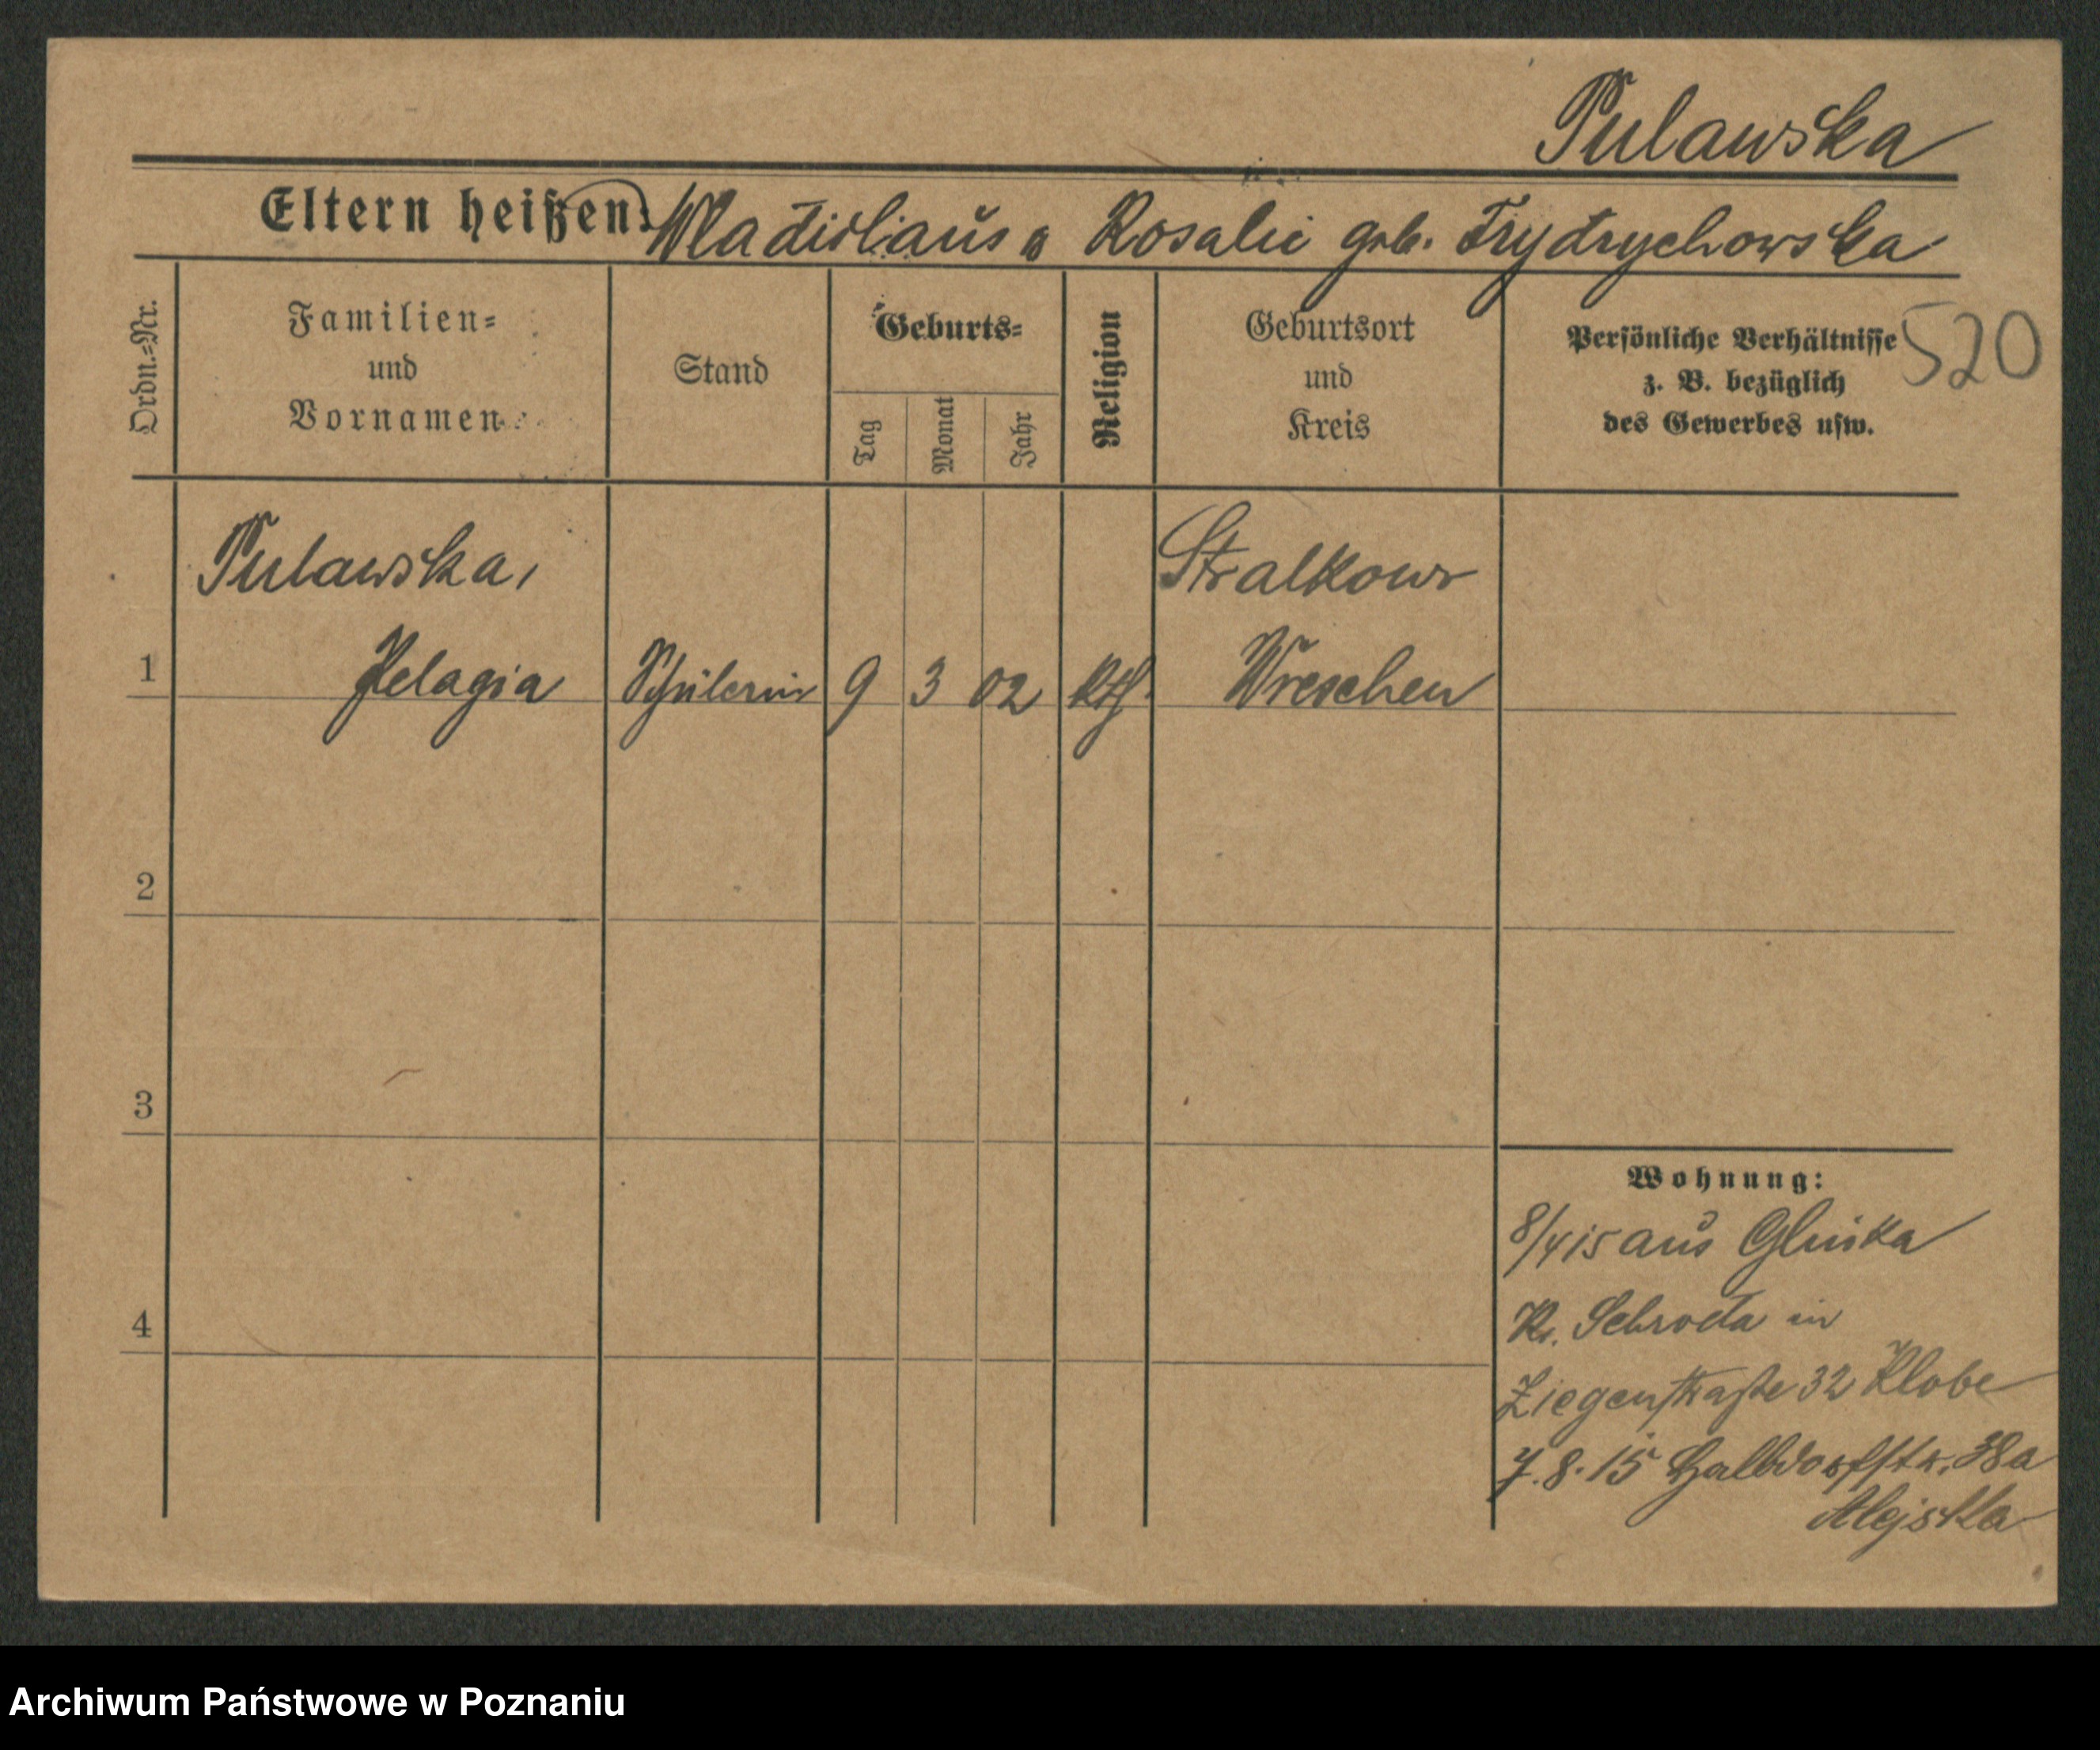 Pulawska
Eltern heißen: Wladislaus u Rosalie geb. Frydrychowska
Ordn.=Nr.
Familien=
und
Vornamen
Stand
Geburts=
Tag
Monat
Jahr
Religion
Geburtsort
und
Kreis
Persönliche Verhältnisse
z. B. bezüglich
des Gewerbes usw.
520
Pulawska,
Stralkowo
1 Pelagia Schülerin 9 3 02 kth. Wreschen
2
3
4
Wohnung:
8/4 15 aus
Kr. Schroda in
Ziegenstraße 32 Klobe
7.8.15 Halbdorfstr. 38a
Archiwum Państwowe w Poznaniu